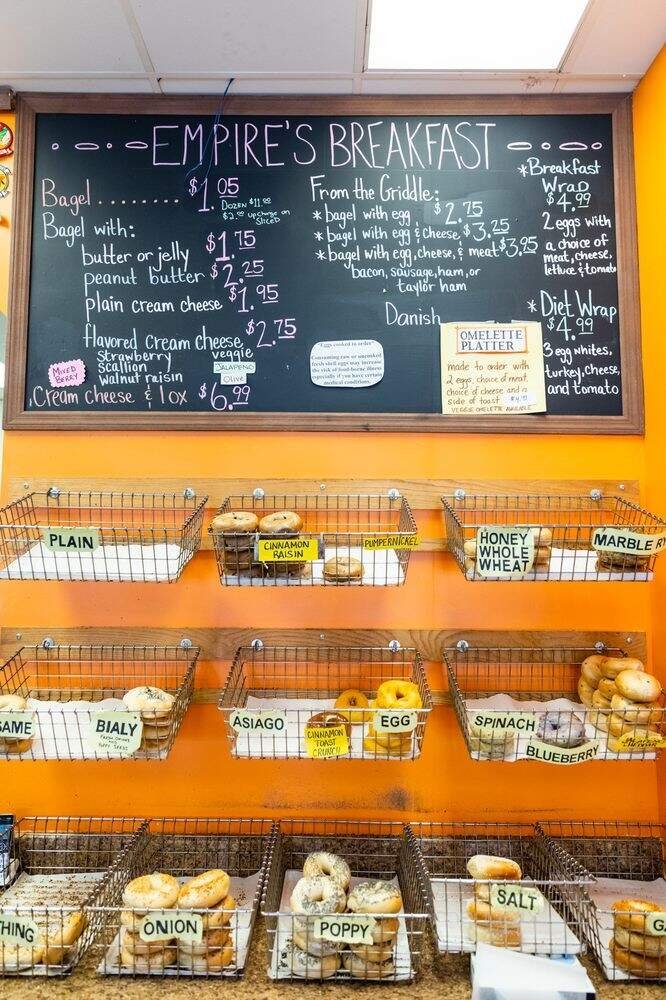 EMPIRE'S BREAKFAST
Bagel ........ $1.05
DOZEN $11.00
$2.00 upcharge on
SLICED
Bagel with:
butter or jelly $1.75
peanut butter $2.25
plain cream cheese $1.95
flavored cream cheese $2.75
strawberry veggie
scallion JALAPENO
walnut raisin OLIVE
MIXED
BERRY
Cream Cheese & lox $6.99
From the Griddle:
* bagel with egg $2.75
* bagel with egg & cheese $3.25
* bagel with egg, cheese, & meat $3.95
bacon, sausage, ham, or
taylor ham
Danish
"Eggs cooked to order"
Consuming raw or uncooked
fresh shell eggs may increase
the risk of food-borne illness
especially if you have certain
medical conditions.
OMELETTE
PLATTER
made to order with
2 eggs, choice of meat,
choice of cheese and a
side of toast
VEGGIE OMELETTE AVAILABLE
* Breakfast
Wrap
$4.99
2 eggs with
a choice of
meat, cheese,
lettuce & tomato
* Diet Wrap
$4.99
3 egg whites,
turkey, cheese,
and tomato
PLAIN
CINNAMON
RAISIN
PUMPERNICKEL
HONEY
WHOLE
WHEAT
MARBLE RY
SAME
BIALY
ASIAGO
CINNAMON
TOAST
CRUNCH
EGG
SPINACH
BLUEBERRY
THING
ONION
POPPY
SALT
GA